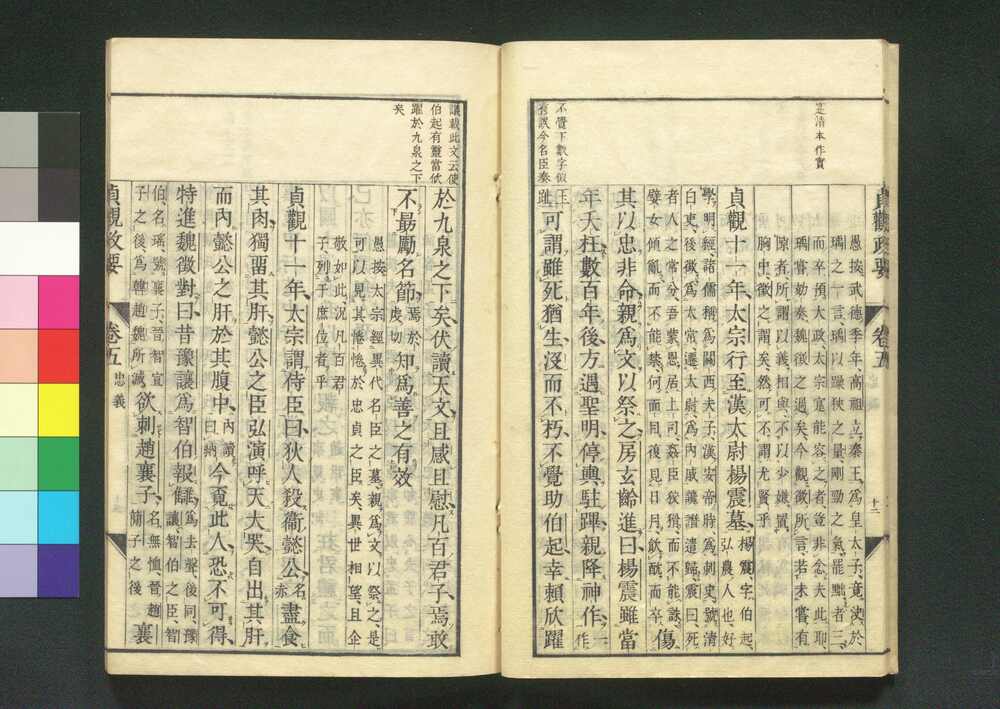 寔清本作實
不覺下數字似
有誤今名臣奏
貞觀政要
卷五
十二
愚按武德季年高祖立秦王爲皇太子竟決於
瑀之一言瑀以躁狹之量剛勁之氣罷黜者三
而卒預大政太宗寔能容之者豈非念夫此耶
瑀嘗劾奏魏徵之過矣今觀徵所言若未嘗有
隙者所謂以義相與不以少嫌置
胸中徵之謂矣然可不謂尤賢乎
貞觀十一年太宗行至漢太尉楊震墓
楊震字伯起
弘農人也好
學明經諸儒稱爲關西夫子漢安帝時爲刺史號清
白吏後徵爲太常遷太尉爲內戚譖遣歸震曰死
者人之常分吾蒙恩居上司姦臣狡猾而不能誅
嬖女傾亂而不能禁何面目復見日月飮酖而卒
傷
其以忠非命親爲文以祭之房玄齡進曰楊震雖當
年夭枉數百年後方遇聖明停輿駐蹕親降神作
一作
玉趾
可謂雖死猶生沒而不朽不覺助伯起幸頼欣躍
議載此文云使
伯起有靈當欣
躍於九泉之下
矣
於九泉之下矣伏讀天文且感且慰凡百君子焉敢
不最勵名節
焉於
虔切
知爲善之有效
愚按太宗經異代名臣之墓親爲文以祭之是
可以見其惓惓於忠貞之臣矣異世相望且企
敬如此況凡百君
子列于庶位者乎
貞觀十一年太宗謂侍臣曰狄人殺衞懿公
名
赤
盡食
其肉獨留其肝懿公之臣弘演呼天大哭自出其肝
而內懿公之肝於其腹中
內讀
曰納
今覓此人恐不可得
特進魏徵對曰昔豫讓爲智伯報讎
爲去聲後同豫
讓智伯之臣智
伯名瑤
襄子晉智宣
子之後爲韓趙魏所滅
欲刺趙襄子
名無恤晉趙
簡子之後
襄
貞觀政要
卷五
忠義